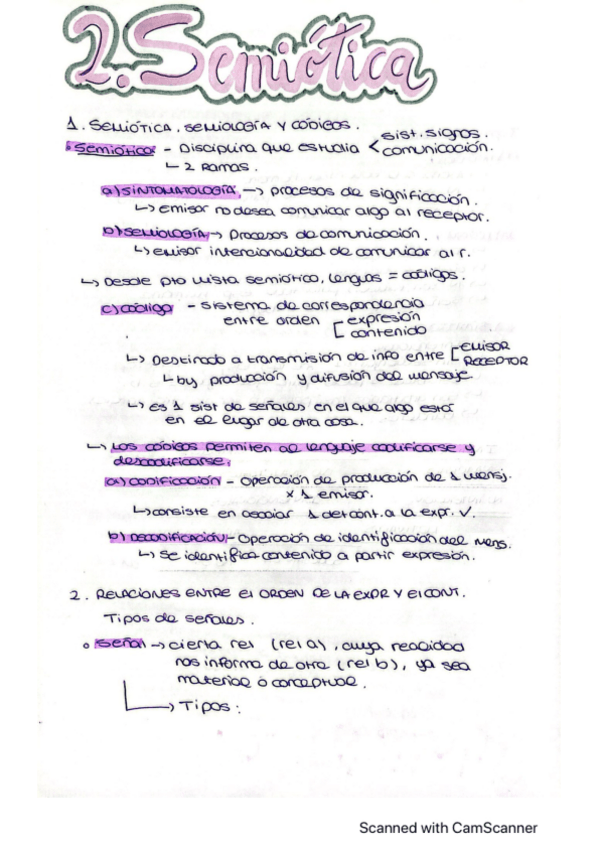 2. Semiótica
1. SEMIÓTICA, SEMIOLOGÍA Y CÓDIGOS.
Semiótica - Disciplina que estudia < sist. signos.
comunicación.
↳ 2 Ramas.
a) SINTOMATOLOGÍA → procesos de significación.
↳ emisor no desea comunicar algo al receptor.
b) SEMIOLOGÍA → Procesos de comunicación.
↳ emisor intencionalidad de comunicar al r.
↳ Desde pto vista semiótico, lenguas = códigos.
c) código - sistema de correspondencia
entre orden [ expresión
contenido
↳ Destinado a transmisión de info entre [ EMISOR
RECEPTOR
↳ by producción y difusión del mensaje
↳ es 1 sist de señales en el que algo está
en el lugar de otra cosa.
↳ Los códigos permiten al lenguaje codificarse y
descodificarse.
a) CODIFICACIÓN - Operación de producción de 1 mensj.
x 1 emisor.
↳ consiste en asociar 1 det cont. a la expr. ✓.
b) DECODIFICACIÓN - Operación de identificación del mens.
↳ Se identifica contenido a partir expresión.
2. RELACIONES ENTRE El ORDEN DE LA EXPR Y El CONT.
Tipos de señales.
Señal → cierta rel (rel a), cuya realidad
nos informa de otra (rel b), ya sea
material o conceptual.
→ Tipos:
Scanned with CamScanner